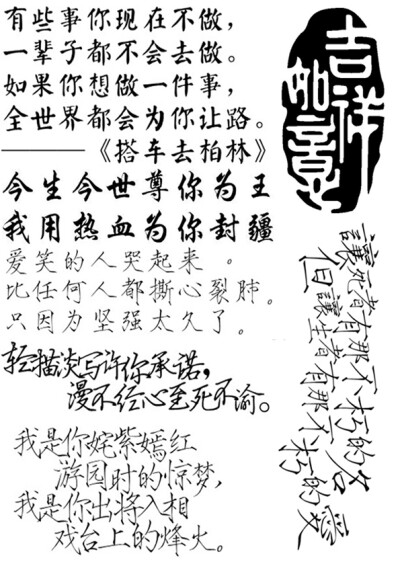 有些事你现在不做，
一辈子都不会去做。
如果你想做一件事，
全世界都会为你让路。
——《搭车去柏林》
今生今世尊你为王
我用热血为你封疆
爱笑的人哭起来。
比任何人都撕心裂肺。
只因为坚强太久了。
轻描淡写许你承诺，
漫不经心至死不渝。
我是你姹紫嫣红
游园时的惊梦，
我是你出将入相
戏台上的烽火。
吉祥
如意
讓死者有那不朽的名
但讓生者有那不朽的愛